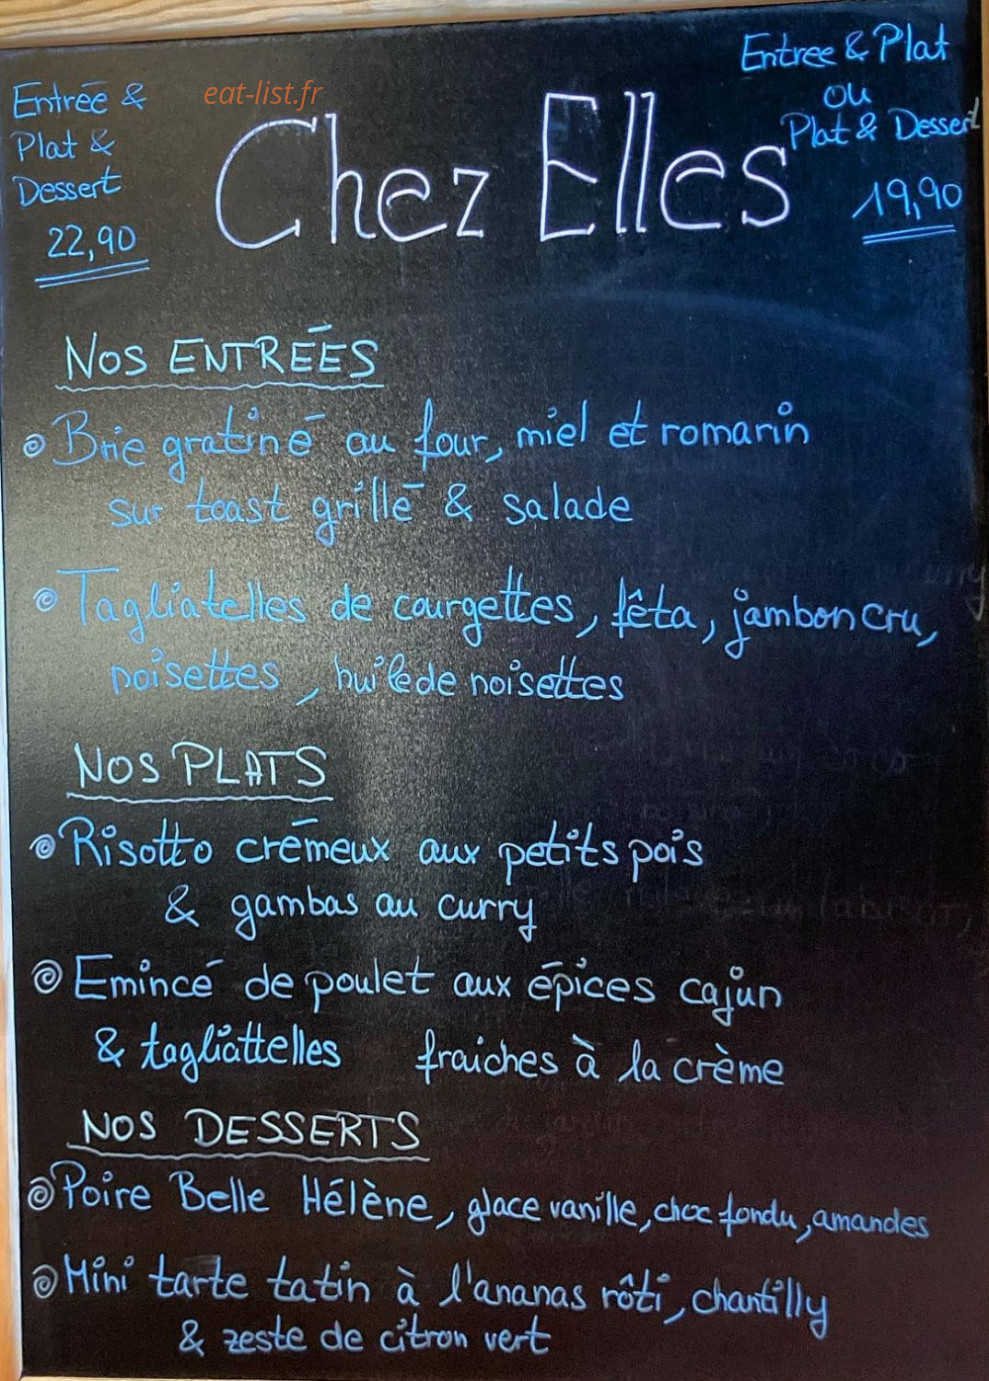 Entrée &
Plat &
Dessert
22,90
eat-list.fr
Chez Elles
Entree & Plat
ou
Plat & Dessert
19,90
NOS ENTRÉES
Brie gratiné au four, miel et romarin
sur toast grillé & salade
Tagliatelles de courgettes, fêta, jambon cru,
noisettes, huile de noisettes
NOS PLATS
Risotto crémeux aux petits pois
& gambas au curry
Emincé de poulet aux épices cajun
& tagliattelles fraiches à la crème
NOS DESSERTS
Poire Belle Hélène, glace vanille, choc fondu, amandes
Mini tarte tatin à l'ananas rôti, chantilly
& zeste de citron vert